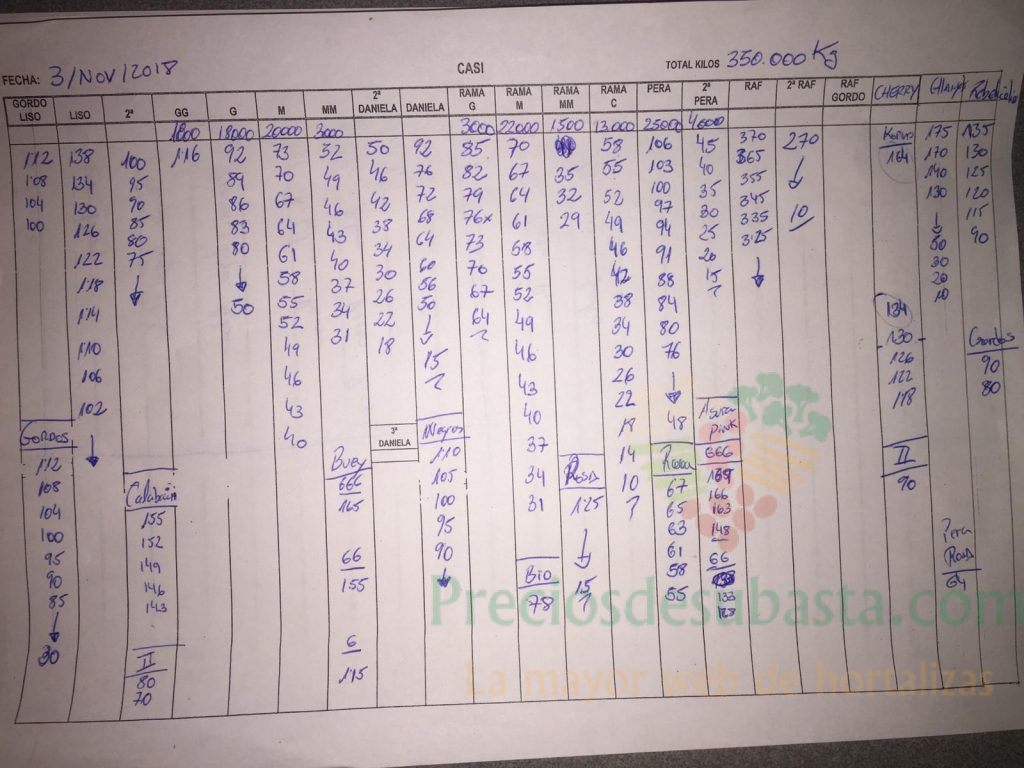 FECHA: 3/NOV/2018 CASI TOTAL KILOS 350.000 Kg
GORDO LISO LISO 2ª GG G M MM 2ª DANIELA DANIELA RAMA G RAMA M RAMA MM RAMA C PERA 2ª PERA RAF 2ª RAF RAF GORDO CHERRY
18000 20000 3000 3000 22000 1500 13000 25000 4000
112 138 100 116 92 73 52 50 92 85 70 58 106 45 370 270 175 135
108 134 95 89 70 49 46 76 82 67 35 55 103 40 365 170 130
104 130 90 86 67 46 42 72 79 64 32 52 100 35 355 140 125
100 126 85 83 64 43 38 68 76x 61 29 49 97 30 345 130 120
122 80 80 61 40 34 64 73 58 46 94 25 335 10 115
118 75 50 58 37 30 60 70 55 42 91 20 325 50 90
114 55 34 26 56 67 52 38 88 15 30
110 52 31 22 50 64 49 34 84 20
106 49 18 15 46 30 80 10
102 46 43 26 76 134
43 40 22 48 130
40 37 18 126
34 14 122
31 10 118
GORDOS
112
108
104
100
95
90
85
30
Calabacín
155
152
149
146
143
II
80
70
Buey
666
165
66
155
6
115
3ª DANIELA
110
105
100
95
90
Bio
78
Rosa
125
15
67
65
63
61
58
55
Pink
666
166
163
148
66
133
128
II
90
Gordos
90
80
Pera
Rosa
64
Preciosdesubasta.com
La mayor web de hortalizas